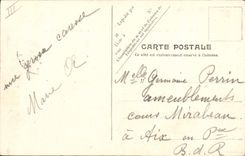 III
une grosse caresse
Marie R
CARTE POSTALE
Ce côté est exclusivement réservé à l'adresse
Melle Germaine Perrin
ameublements
cours Mirabeau
à Aix en Pce
B.d.R